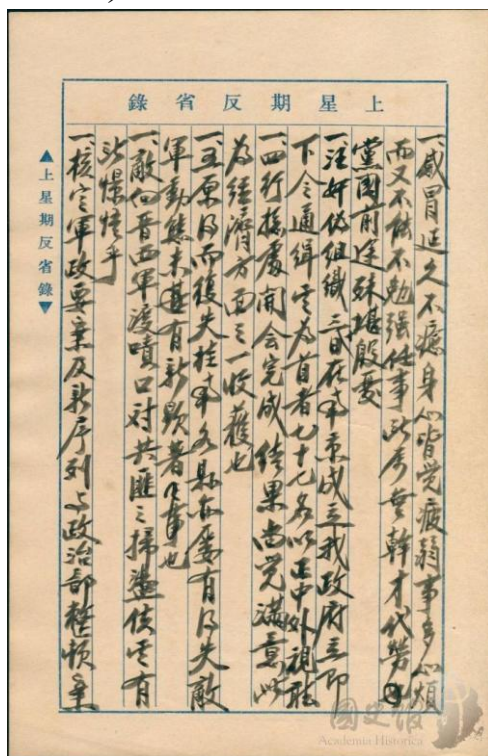 上星期反省錄
一、感冒延久不癒身心皆覺疲弱事多心煩
而又不能不勉強任事所屬無幹才代勞
黨國前途殊堪殷憂
一、汪奸偽組織 日在南京成立我政府立即
下令通緝其為首者七十七名以正中外視聽
一、四行總處開會完成結果尚覺滿意此
為經濟方面之一收獲也
一、五原得而復失桂南各縣亦屢有得失敵
軍動態未甚有新顯著之事也
一、敵向晉西軍渡磧口對共匪之掃蕩使其有
所憬悟乎
一、核定軍政要案及新序列與政治部整頓案
▲上星期反省錄▼
國史館
Academia Historica